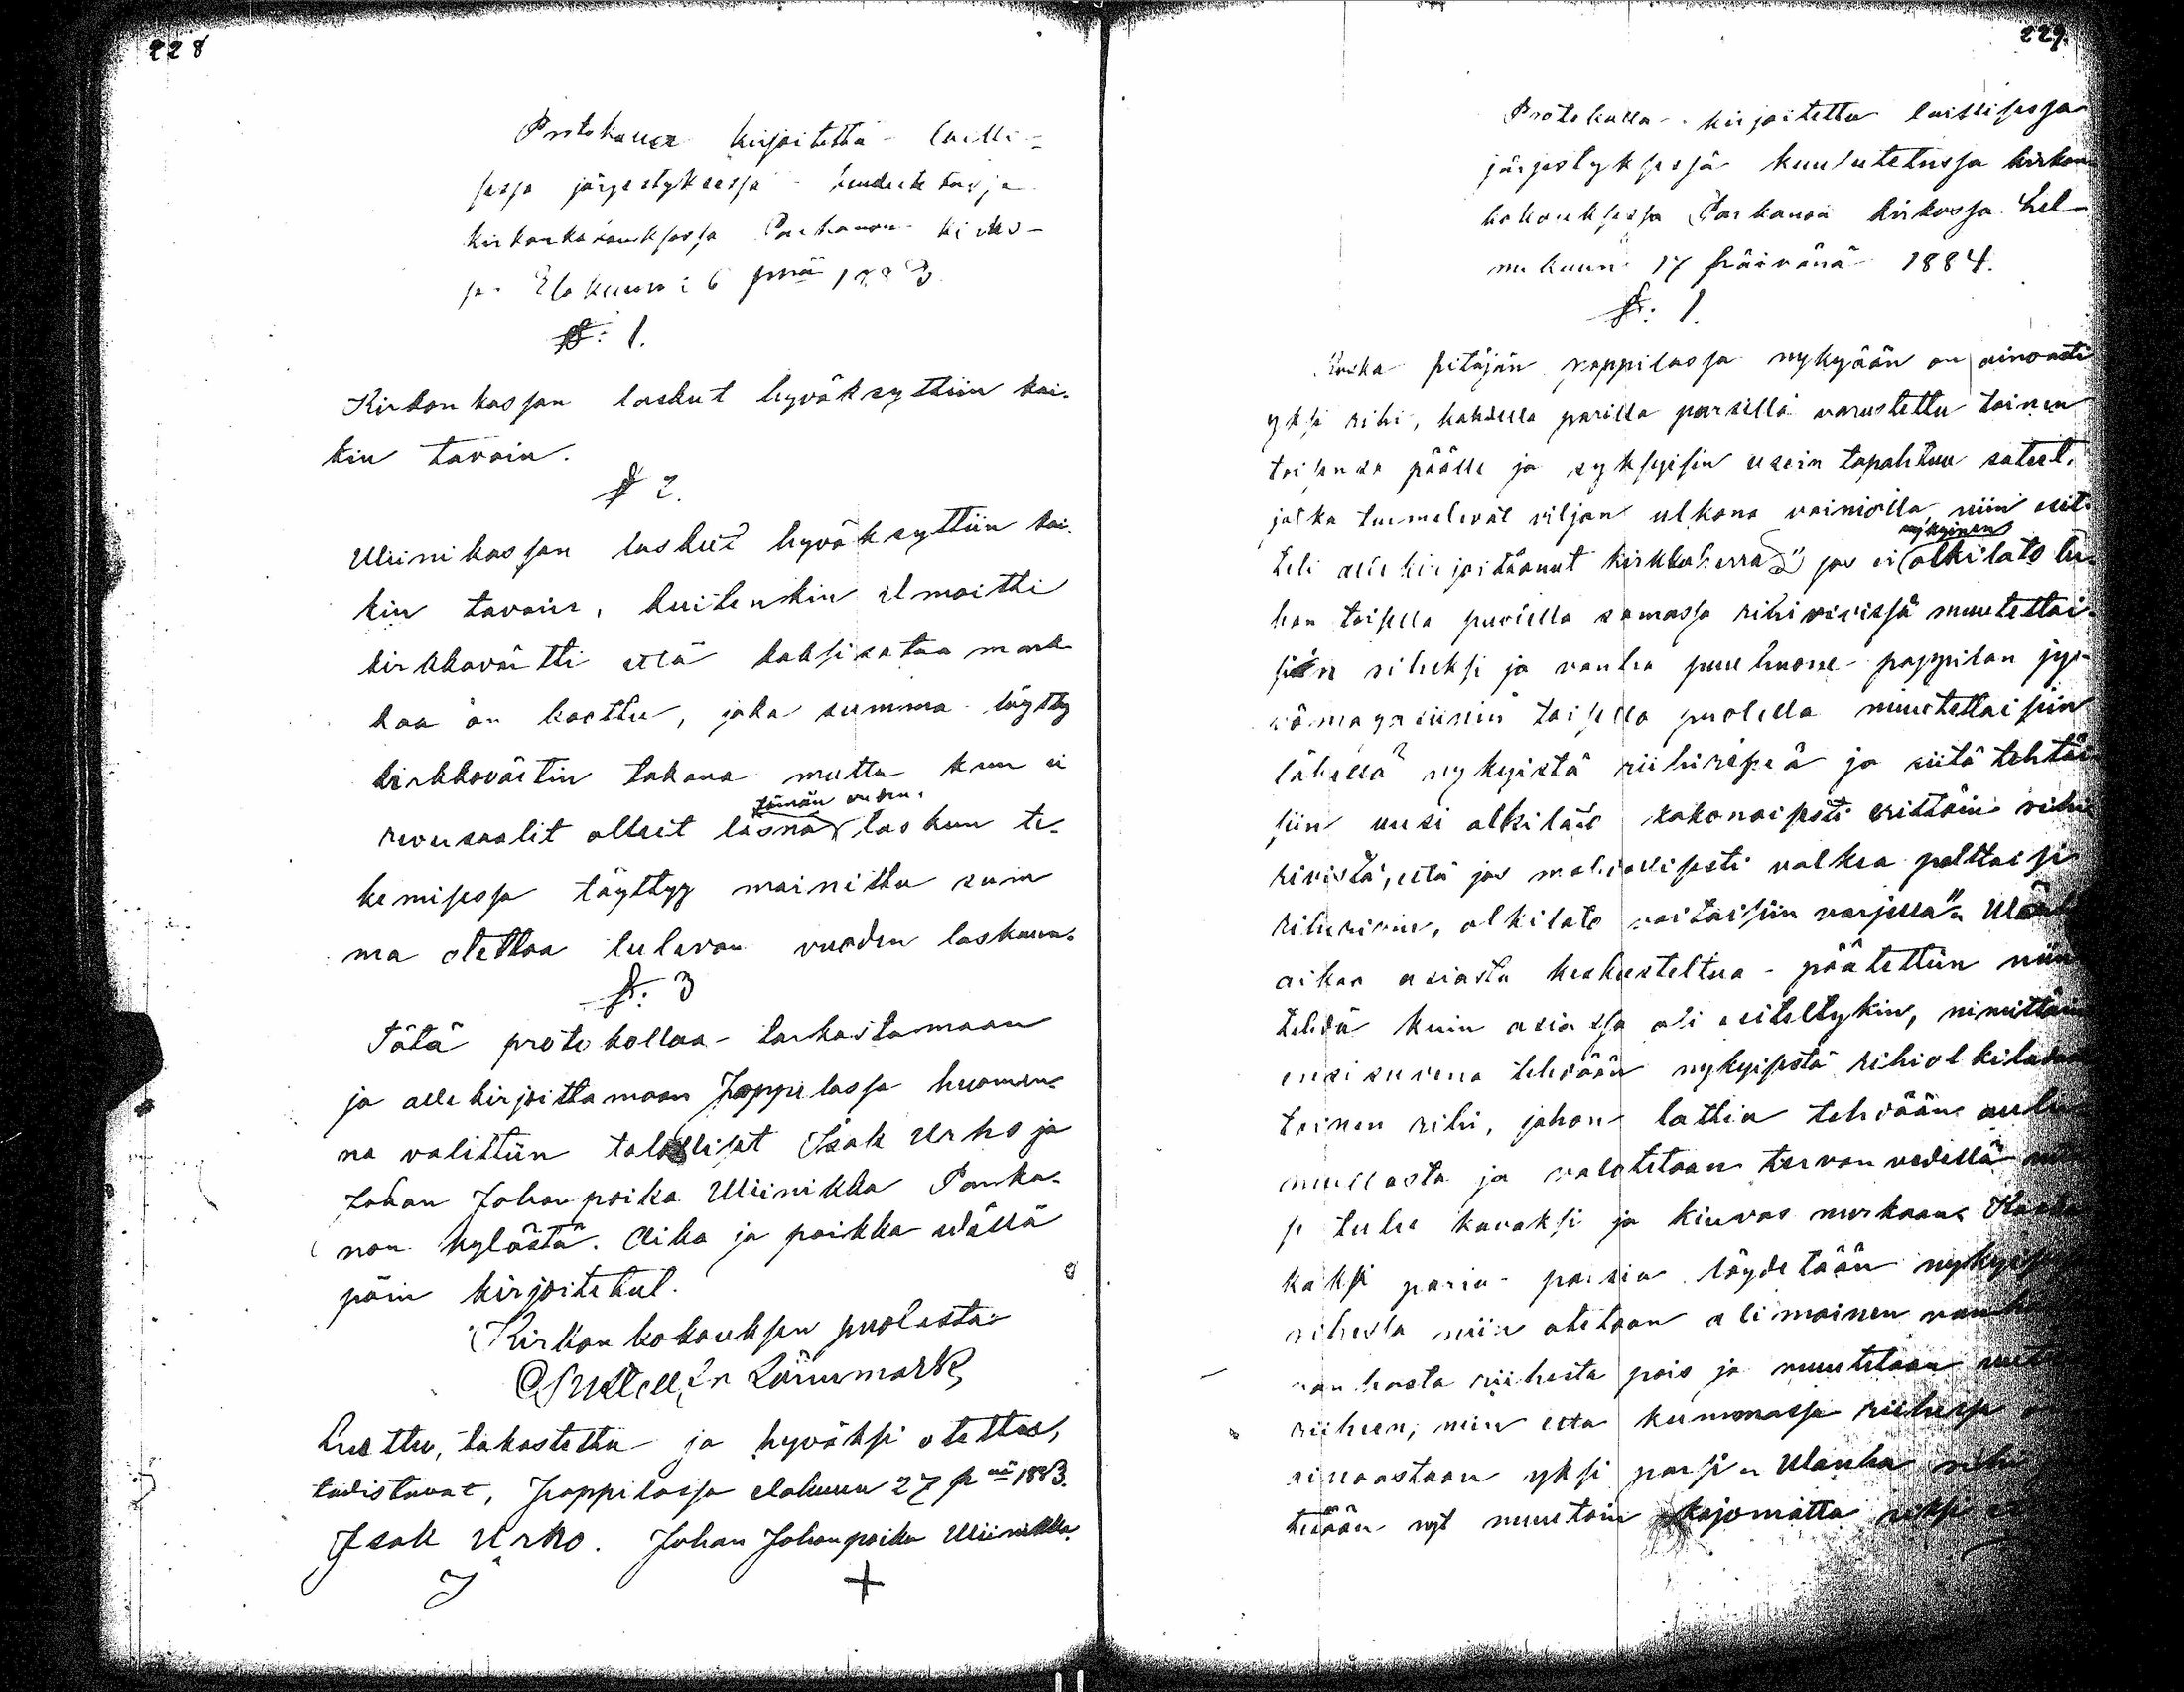 228
Protokolla kirjoitettu lailli-
sessa järjestyksessä kuulutetussa
kirkonkokouksessa Parkanon kirkos-
sa Elokuun 26 pnä 1883
§: 1.
Kirkon kassan laskut hyväksyttiin kai-
kin tavoin.
§ 2.
Wiinikassan laskut hyväksyttiin kai-
kin tavoin, kuitenkin ilmoitti
kirkkoväitti että kaksisataa mark-
kaa on koottu, joka summa löytty
kirkkovärtin takana mutta kun ei
tämän vuden
reversaalit olleet läsnä laskun te-
kemisessa täyttyy mainittu sum
ma otettaa tulevan vuoden laskuun.
§: 3
Tätä protokollaa tarkastamaan
ja allekirjoittamaan Pappilassa huomen-
na valittiin talolliset Isak Urho ja
Johan Johanpoika Wiinikka Parka-
non kylästä. Aika ja paikka ulällä
päin kirjoitetut.
Kirkon kokouksen puolesta
Lönnmark
Luettu, takastettu ja hyväksi otettu,
todistavat, Pappilassa elokuun 27 p nä 1883.
Isak Urho. Johan Johanpoika Wiinikka
+
229.
Protokolla kirjoitettu laillisessa
järjestyksessä kuulutetussa kirkon
kokouksessa Parkanon kirkossa Hel-
mikuun 17 päivänä 1884.
§: 1.
Koska pitäjän pappilassa nykyään on ainoasti
yksi rihi, kahdella parilla parsilla varustettu toinen
toisensa päälle ja syksyisin usein tapahtuu sateet,
jotka turmelevat viljan ulkona vainiolla niin esit-
nykyinen
teli allekirjoittanut kirkkoherra " jos ei olkilato tu-
han toisella puolella samassa rihi rivissä muutettai-
siin riheksi ja vanha puuhuone pappilan jy-
vämagasiinin toisella puolella muutettaisiin
lähellä nykyistä riihiriviä ja siitä tehtäi
siin uusi olkilato kokonaisesti erittäin rihi
rivistä, että jos mahdollisesti valkea polttaisi
rihirivin, olkilato voitaisiin varjella" Wähän
aikaa asiasta keskusteltua päätettiin niin
tehdä kuin asiassa oli esiteltykin, nimittäin
ensi suvena tehdään nykyisestä rihiolkiladosta
toinen rihi, johon lattia tehdään
mullasta ja valetetaan tervan vedellä
se tulee kovaksi ja kiuvas nurkaan. Koska
kaksi paria parsia löydetään nykyisessä
rihessä niin otetaan alimainen
vanhasta riihestä pois ja muutetaan uuteen
riiheen, niin että kummassa riihessä
ainoastaan yksi parsia Wanha rihi
tehdään nyt muutoin kajomatta